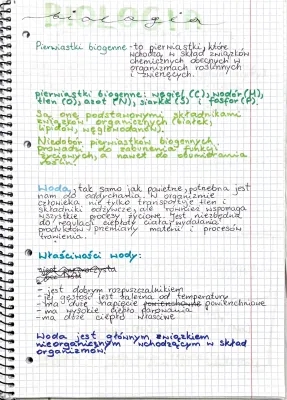 BIOLOGIA
biologia
Pierwiastki biogenne - to pierwiastki, które
wchodzą w skład związków
chemicznych obecnych w
organizmach roślinnych
i zwierzęcych.
pierwiastki biogenne: węgiel (C), wodór (H),
tlen (O), azot (N), siarka (S) i fosfor (P).
Są one podstawowymi składnikami
związków organicznych (białek,
lipidów, węglowodanów).
Niedobór pierwiastków biogennych
prowadzi do zaburzenia funkcji
życiowych, a nawet do obumierania
Woda, tak samo jak powietrze, potrzebna jest
nam do oddychania. W organizmie
człowieka nie tylko transportuje tlen i
składniki odżywcze, ale również wspomaga
wszystkie procesy życiowe. Jest niezbędna
do regulacji ciepłoty ciała, wydalania
produktów przemiany materii i procesów
trawienia.
Właściwości wody:
- jest dobrym rozpuszczalnikiem
- jej gęstość jest zależna od temperatury
- ma duże napięcie powierzchniowe
- ma wysokie ciepło parowania
- ma duże ciepło właściwe
Woda jest głównym związkiem
nieorganicznym wchodzącym w skład
organizmów.